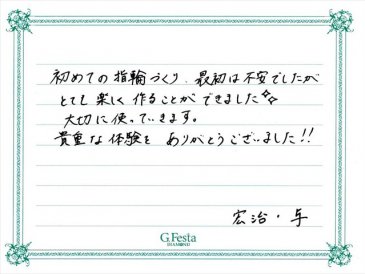 初めての指輪づくり、最初は不安でしたが
とても楽しく作ることができました✨
大切に使っていきます。
貴重な体験を ありがとうございました!!
宏治・歩
G.Festa
DIAMOND